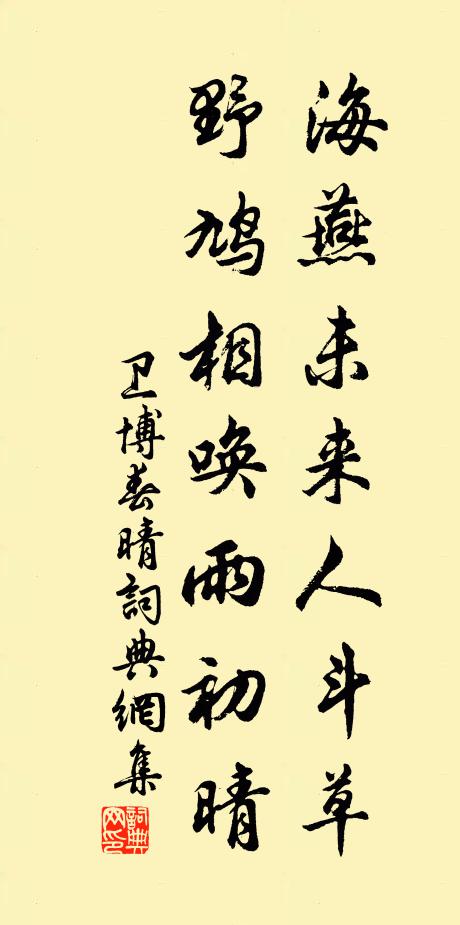 海燕未来人斗草
野鸠相唤雨初晴
卫博春晴詞典網集
詞典网印